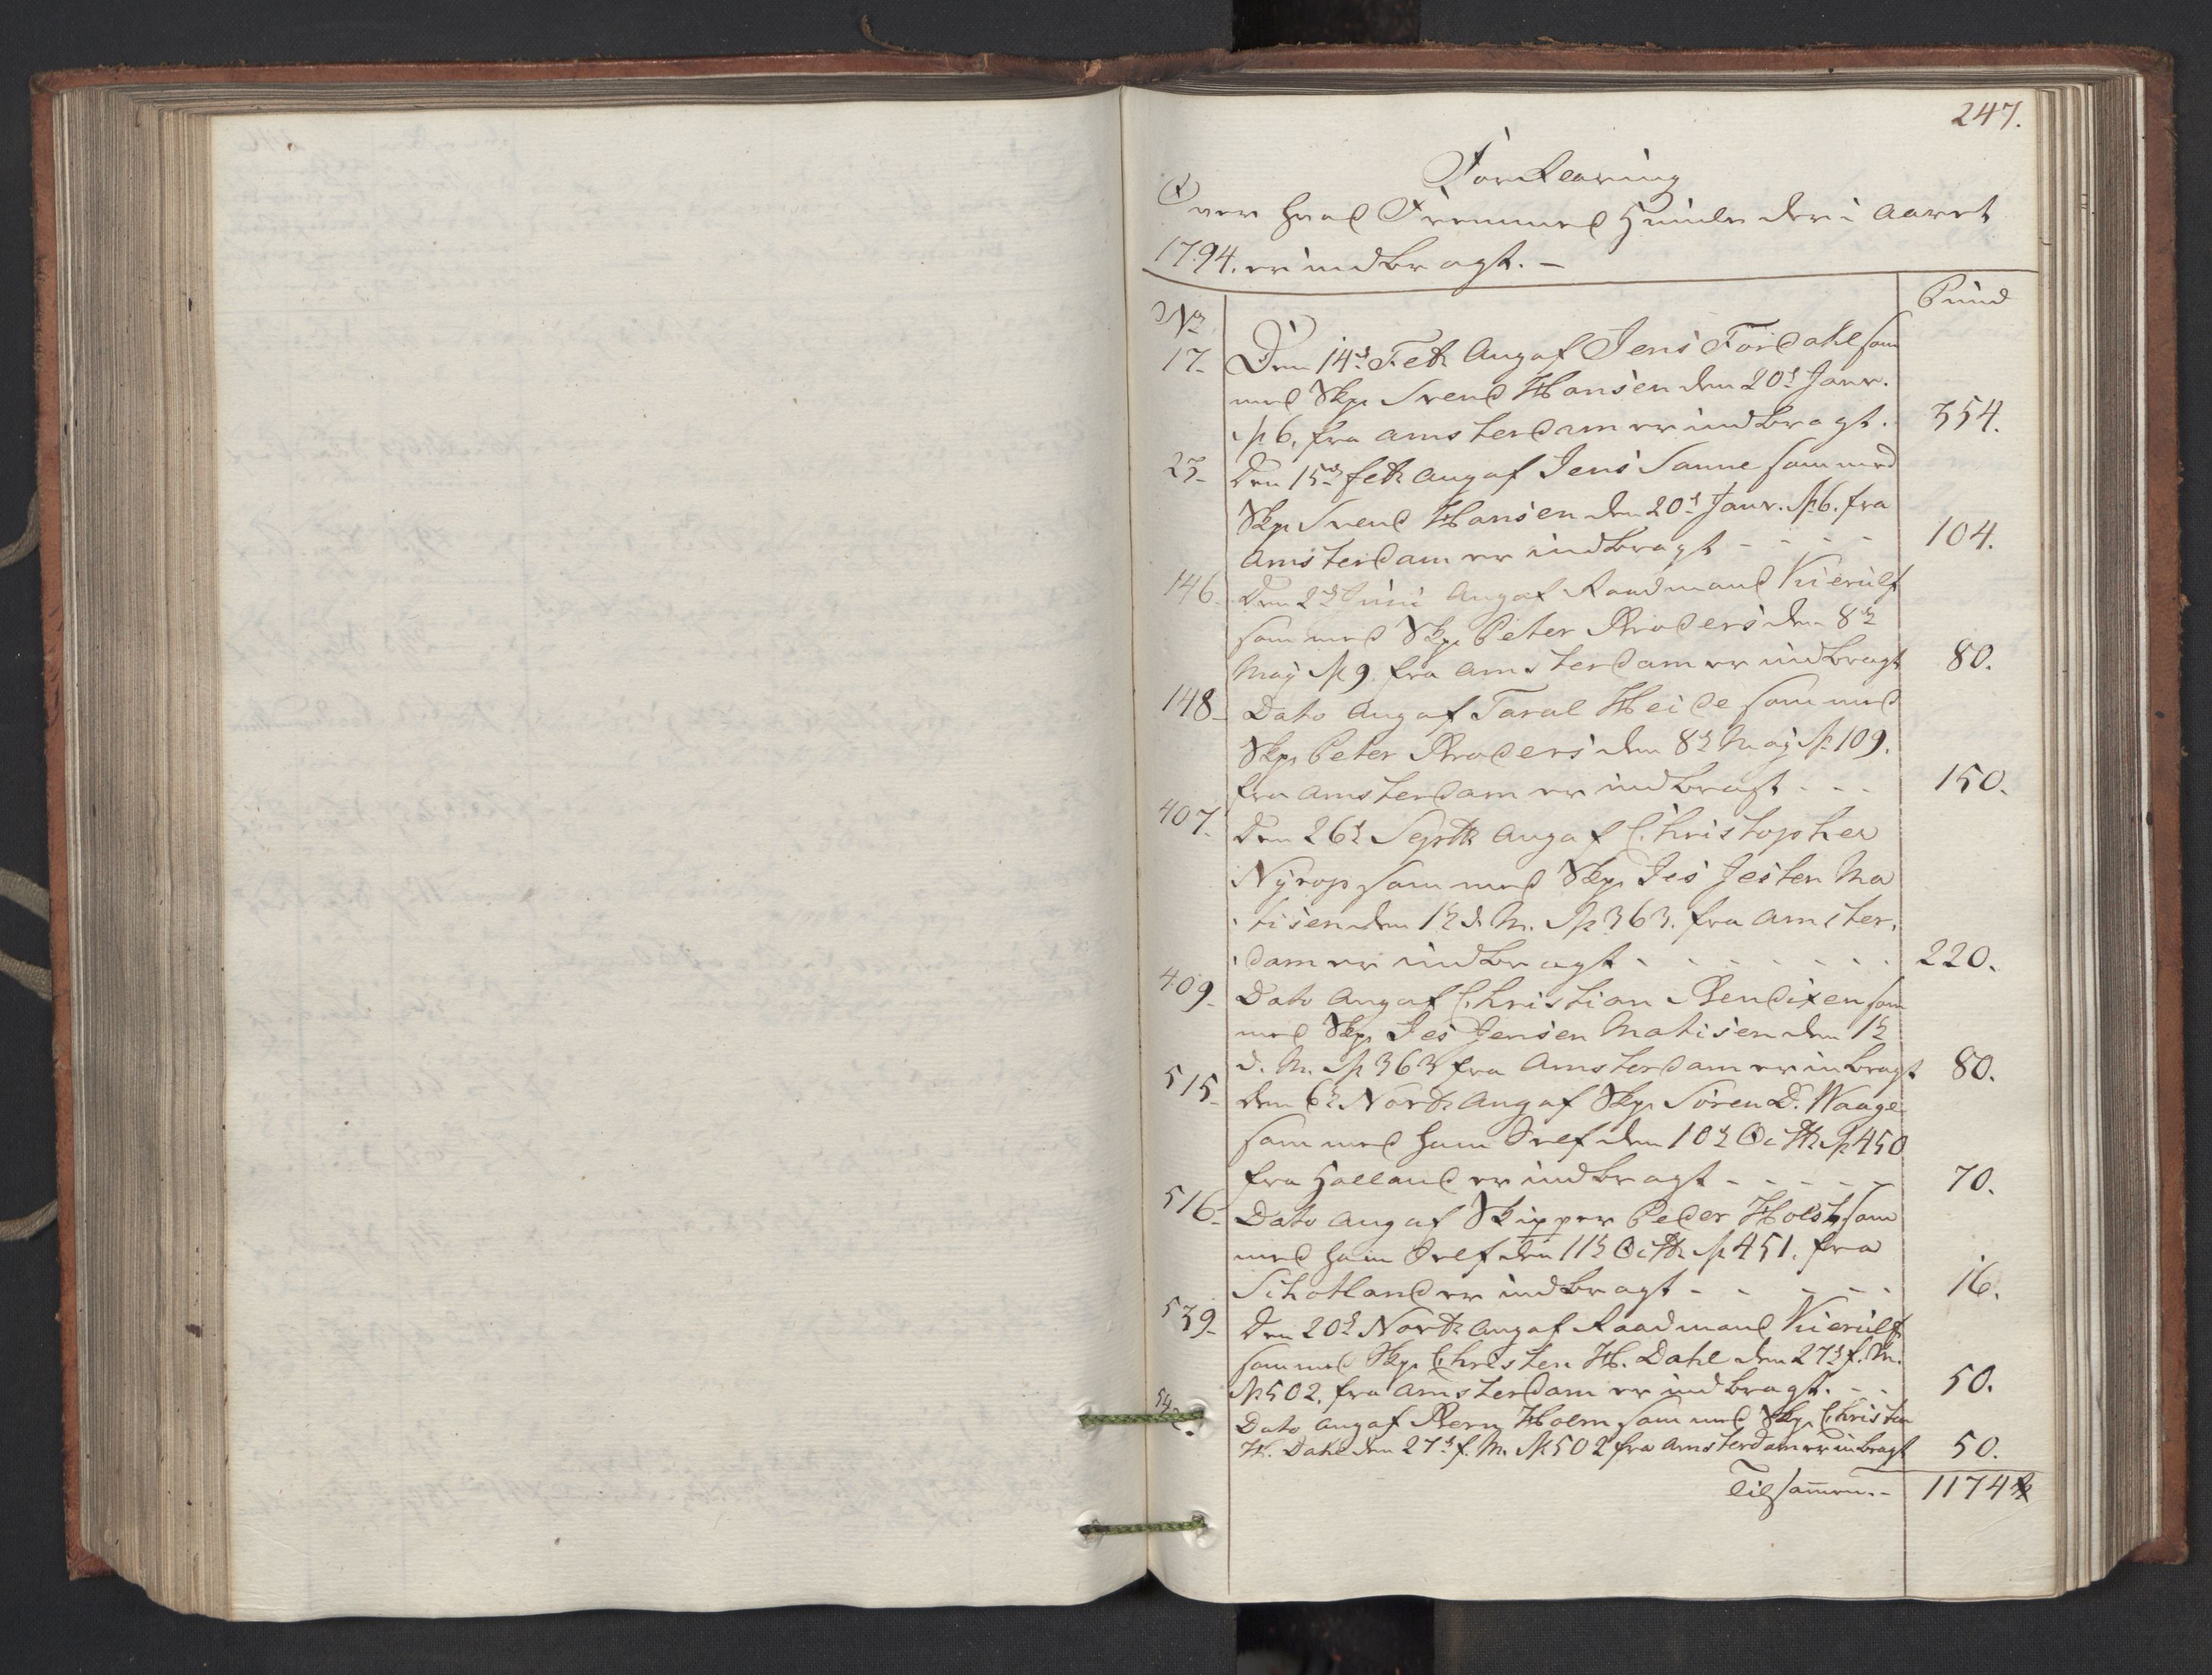 247.
Forklaring
Over hvad Fremmed Humle der i Aaret
1794. er indbragt. -
No Pund
17. Den 14de Febr. Angaf Jens Fordahl som
med Skp. Svend Hansen den 20de Janr.
No 6. fra Amsterdam er indbragt. 354.
23. Den 15de febr. angaf Jens Sanne som med
Skp. Svend Hansen den 20de Janr. No 6. fra
Amsterdam er indbragt - - - - 104.
146. Den 2de Juni Angaf Raadmand Kierulf
som med Skp. Peter Broders den 8de
Maj No 9. fra Amsterdam er indbragt 80.
148. Dato Angaf Taral Heide som med
Skp. Peter Broders den 8de Maj No 109.
fra Amsterdam er indbragt - - - 150.
407. Den 26de Septbr. Angaf Christopher
Nyrop som med Skp. Jes Jesten Ma
tisen den 1te d. M. No 363. fra Amster,
dam er indbragt - - - - - - - 220.
409. Dato Angaf Christian Bendixen som
med Skp. Jes Jensen Matisen den 1te
d. M. No 363 fra Amsterdam er inbragt 80.
515. den 6te Novbr. Angaf Skp. Søren D. Waage
som med ham Self den 10de Octbr. No 450
fra Holland er indbragt - - - - - 70.
516. Dato Angaf Skipper Peder Holst som
med ham Self den 11te Octbr. No 451. fra
Schotland er indbragt - - - - - 16.
539. Den 20de Novbr. Angaf Raadmand Kierulf
som med Skp. Christen H. Dahl den 27de f. M.
No 502. fra Amsterdam er indbragt. - - 50.
Dato angaf Bern Holm som med Skp. Christen
H. Dahl den 27de f. M. No 502 fra Amsterdam er inbragt 50.
Tilsammen.- 1174 ℔